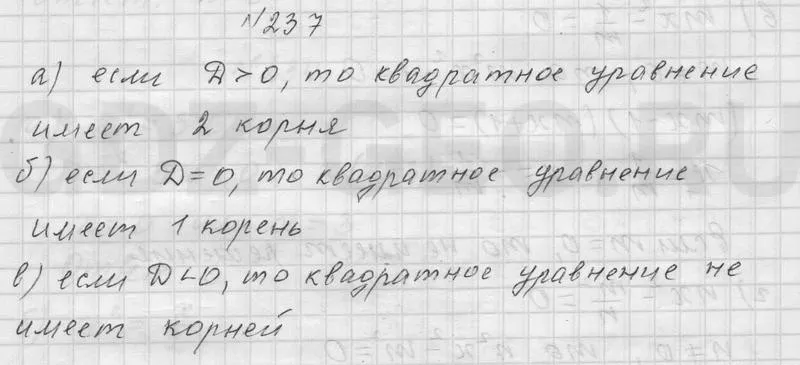 №237
а) если D>0, то квадратное уравнение
имеет 2 корня
б) если D=0, то квадратное уравнение
имеет 1 корень
в) если D<0, то квадратное уравнение не
имеет корней